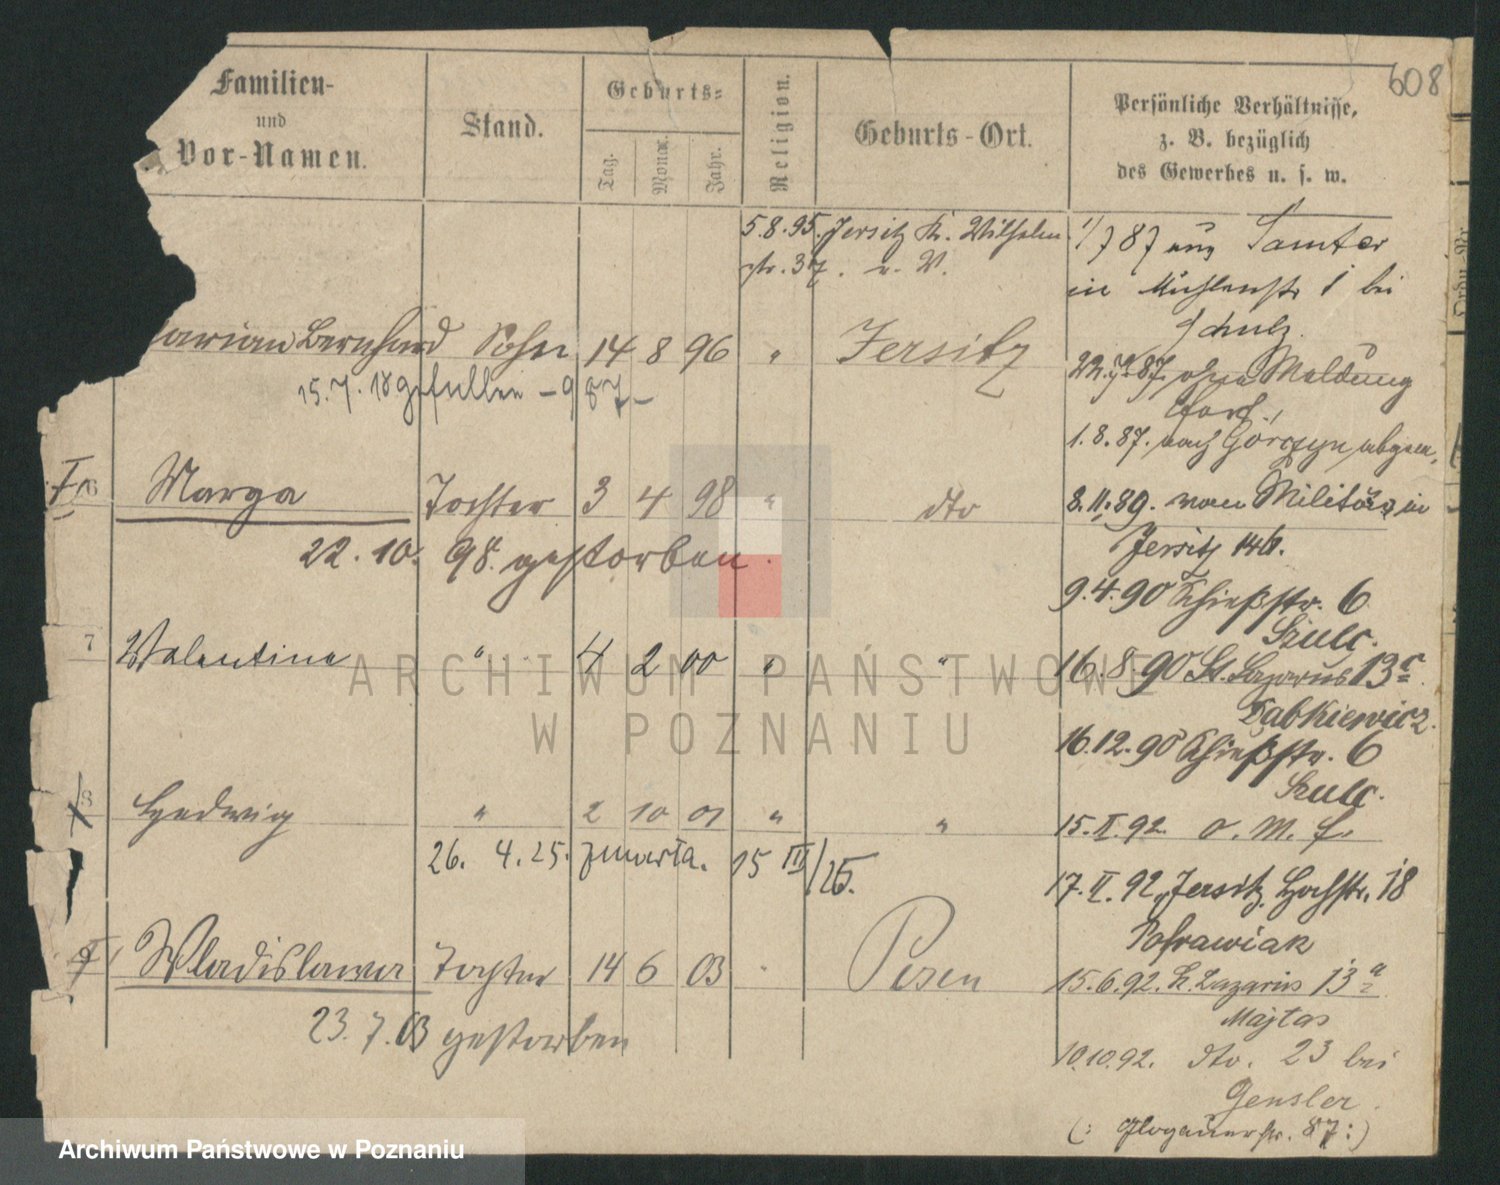 608
Familien-
und
Vor-Namen.
Stand.
Geburts=
Tag.
Monat.
Jahr.
Religion.
Geburts-Ort.
Persönliche Verhältnisse,
z. B. bezüglich
des Gewerbes u. s. w.
5.8.95. Jersitz K. Wilhelm
str. 37. v. V.
1/7 87 aus Samter
in Mühlenstr 1 bei
Schulz.
arian Bernhard Sohn 14 8 96 " Jersitz
15.7.18 gefallen - 987-
22.7.87 ohne Meldung
fort.
1.8.87. nach Górczyn abgem.
6 Marga Tochter 3 4 98 " dto
22.10. 98. gestorben.
8.11.89. vom Militär in
Jersitz 146.
9.4.90 Schießstr. 6
Szulc.
7 Valentine " 4 2 00 " "
16.8.90 St. Lazarus 13c
Dabkiewicz.
16.12.90 Schießstr. 6
Szulc.
8 Hedwig " 2 10 01 " "
26. 4.25. zmarła. 15 III/25.
15.II.92 o. M. f.
17.II.92. Jersitz, Hochstr. 18
Pofrawiak
9 Wladislawa Tochter 14 6 03 " Posen
23.7.03 gestorben
15.6.92. St. Lazarus 13a
Majtas
10.10.92. dto. 23 bei
Gensler.
(: Glogauerstr. 87:)
ARCHIWUM PAŃSTWOWE
W POZNANIU
Archiwum Państwowe w Poznaniu